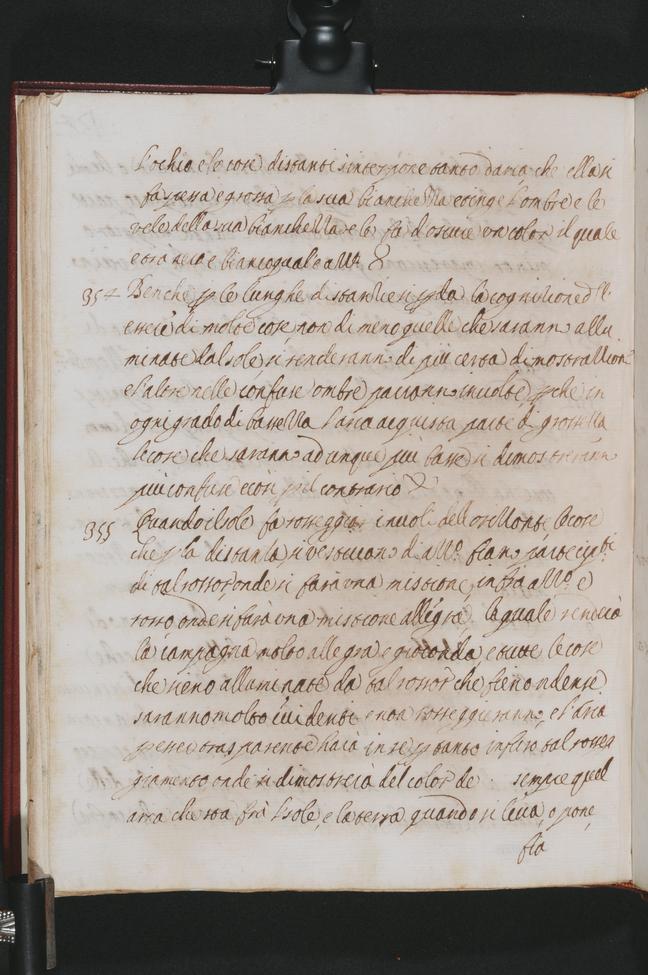 L'ochio e le cose distanti s'interpone tanto d'aria che ella si
fa spessa e grossa p la sua bianchezza e tinge l'ombre e le
vele della sua bianchezza e le fa d'oscure un color il quale
è tra nero e bianco quale azzo
354 Benche p le lunghe distantie si pda la cognitione dell'
essere di molte cose non di meno quelle che sarann allu
minate dal sole si renderann di piu certa dimostrattione
e l'altre nelle confuse ombre parrann involte pche in
ogni grado di bassezza l'aria acquista parte di grossezza
le cose che sarann adunque piu basse si dimostrerann
piu confuse e così pel contrario
355 Quando il sole fa rosseggiar i nuoli dell'orizzonte le cose
che p la distanza si vestivan di azzo fian partecipti
di tal rossor onde si farà una mistione infra azzo e
rosso onde si farà una mistione allegra, la quale renderà
la campagna molto allegra e gioconda e tutte le cose
che sieno alluminate da tal rossor che fieno ndense
saranno molto evidenti e rosseggierann, e l'aria
p esser trasparente harà in se p tanto infuso tal rosseg
giamento onde si dimostrerà del color de sempre quel
aria che sta frà l sole, e la terra quando si leva, o pone
fia